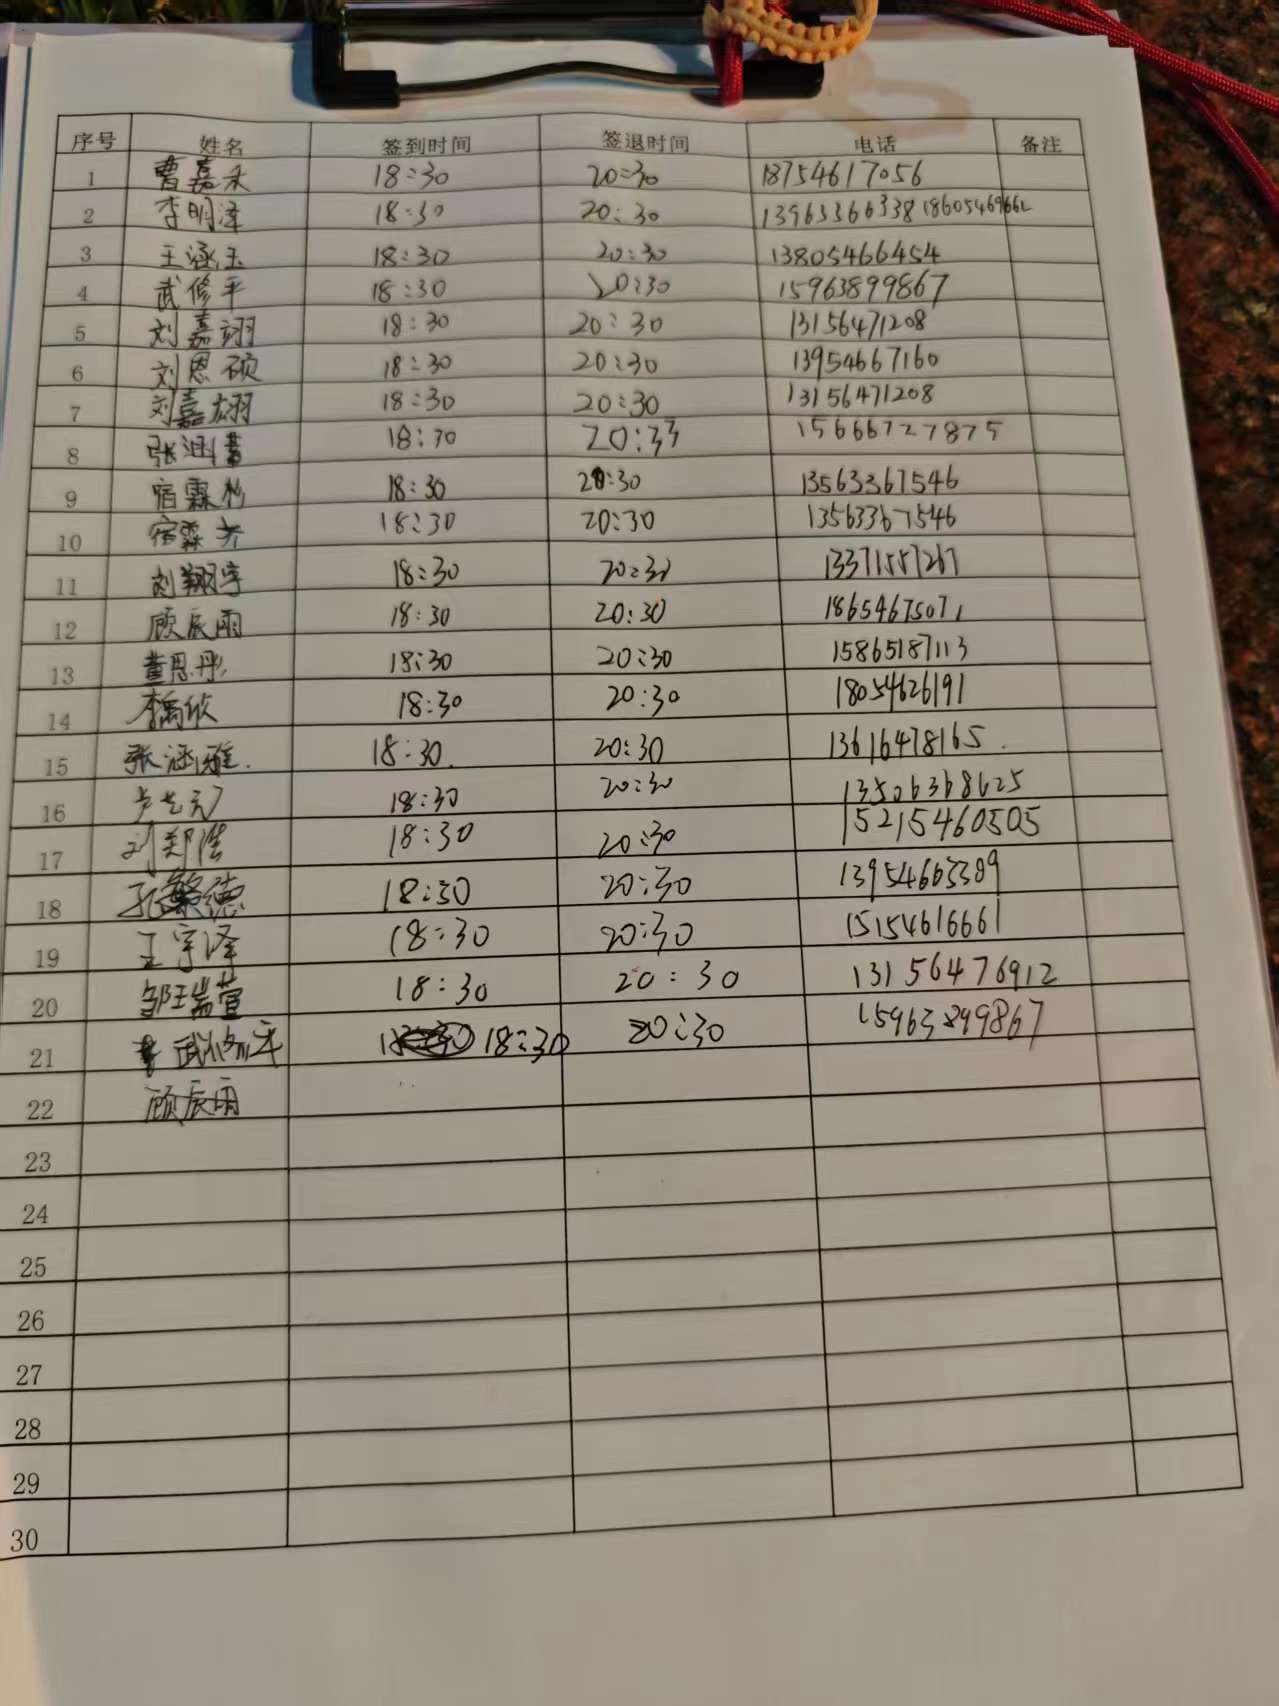 序号 姓名 签到时间 签退时间 电话 备注
1 曹嘉禾 18:30 20:30 18754617056
2 李明泽 18:30 20:30 13963366338 18605469662
3 王涵玉 18:30 20:30 13805466454
4 武修平 18:30 20:30 15963899867
5 刘嘉翊 18:30 20:30 13156471208
6 刘恩硕 18:30 20:30 13954667160
7 刘嘉翃 18:30 20:30 13156471208
8 张涵 18:30 20:33 15666727875
9 宿霖杉 18:30 20:30 13563367546
10 宿霖 18:30 20:30 13563367546
11 刘翔宇 18:30 20:30 13371557267
12 顾辰雨 18:30 20:30 18654675071
13 董恩彤 18:30 20:30 15865187113
14 李禹欣 18:30 20:30 18054626191
15 张涵雅. 18:30. 20:30 13616478165.
16 卢艺元 18:30 20:30 13506368625
17 刘郑浩 18:30 20:30 15215460505
18 孔繁德 18:30 20:30 13954663389
19 王宇泽 18:30 20:30 15154616661
20 邹王瑞萱 18:30 20:30 13156476912
21 武修平 18:30 20:30 15963899867
22 顾辰雨
23
24
25
26
27
28
29
30